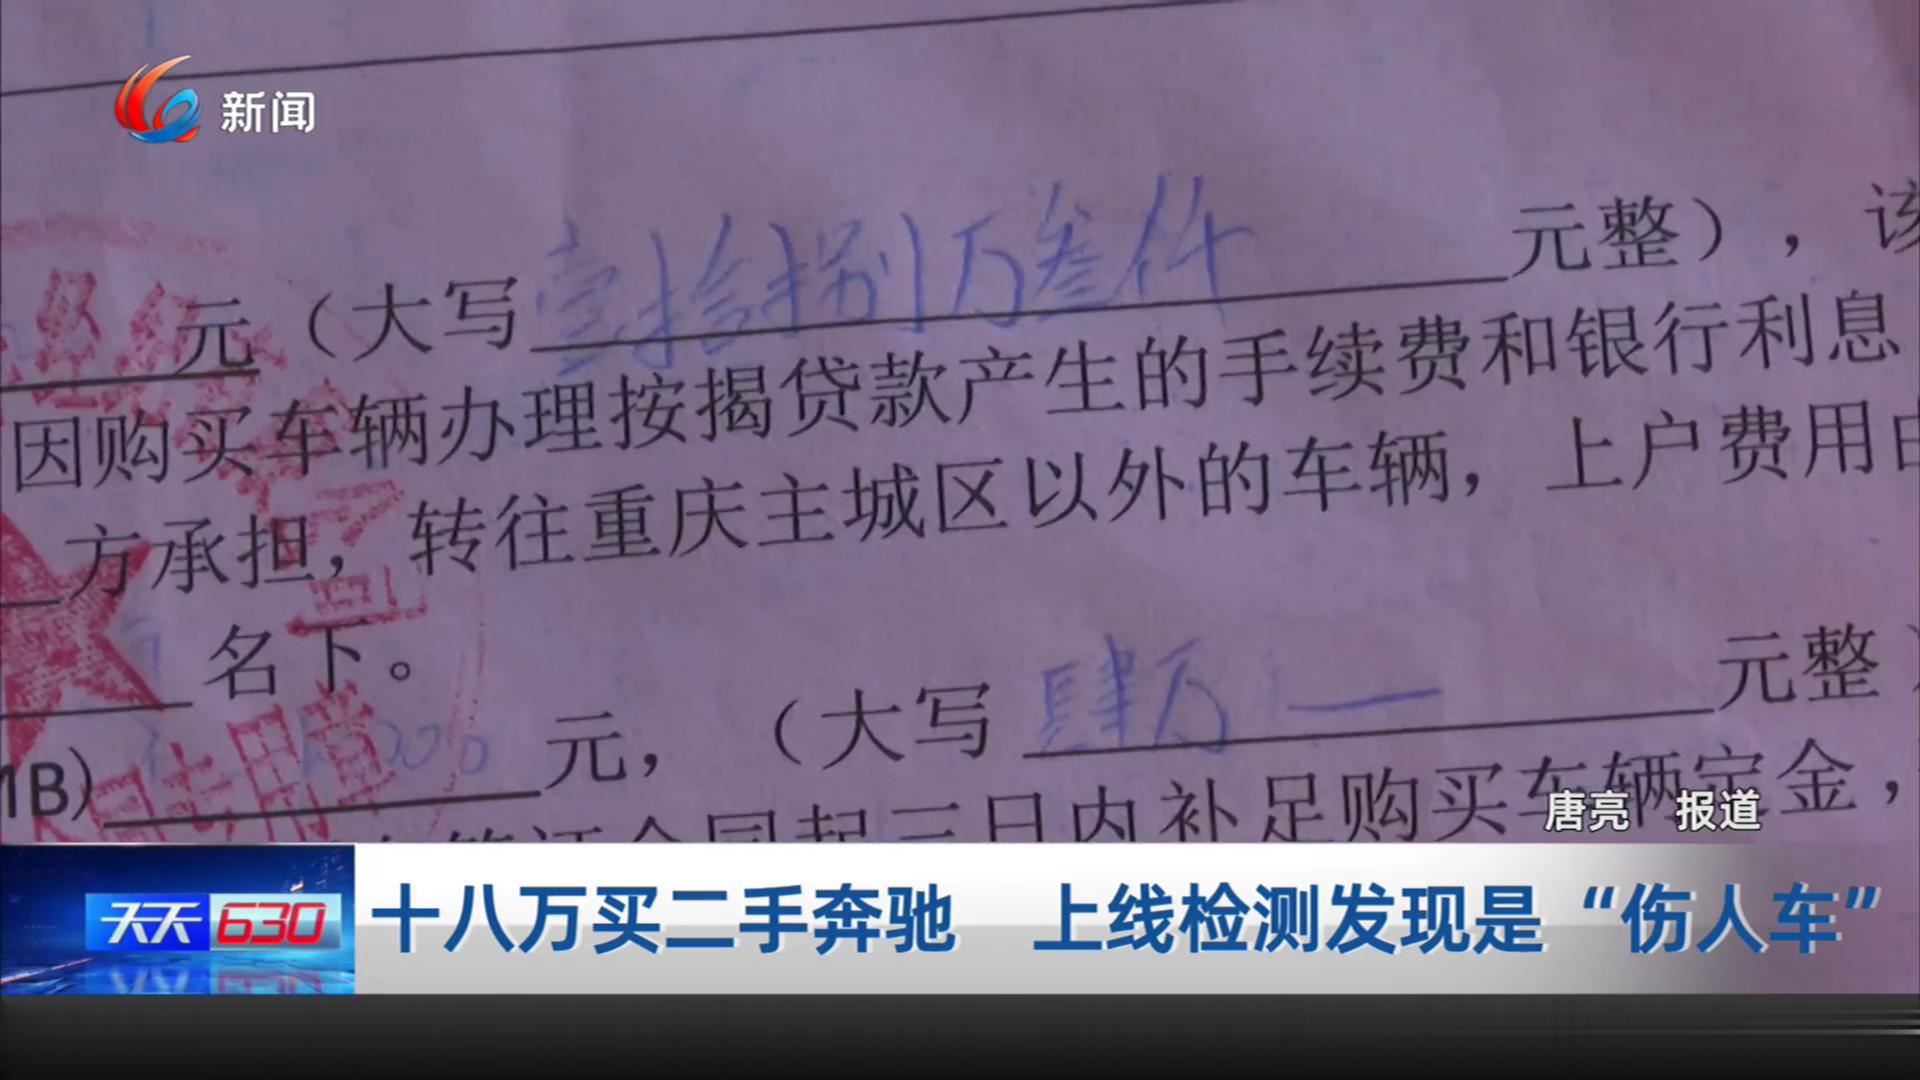 新闻
元（大写壹拾捌万叁仟元整），该
因购买车辆办理按揭贷款产生的手续费和银行利息
方承担，转往重庆主城区以外的车辆，上户费用由
名下。
元，（大写肆万元整）
合同起三日内补足购买车辆定金，
唐亮 报道
天天630
十八万买二手奔驰 上线检测发现是“伤人车”